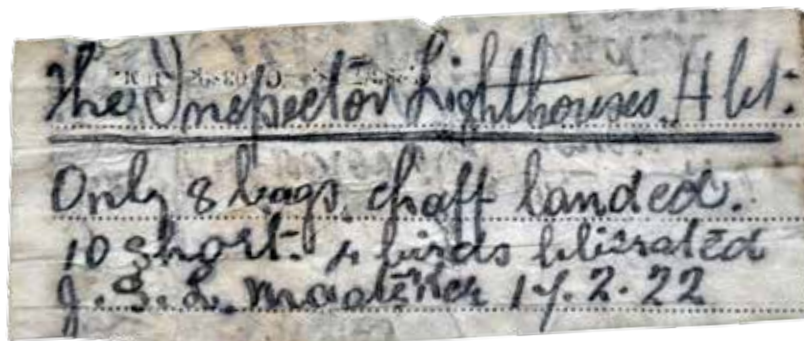 The Inspector Lighthouses, Hbt.
Only 8 bags chaff landed.
10 short. 4 birds liberated
17.2.22